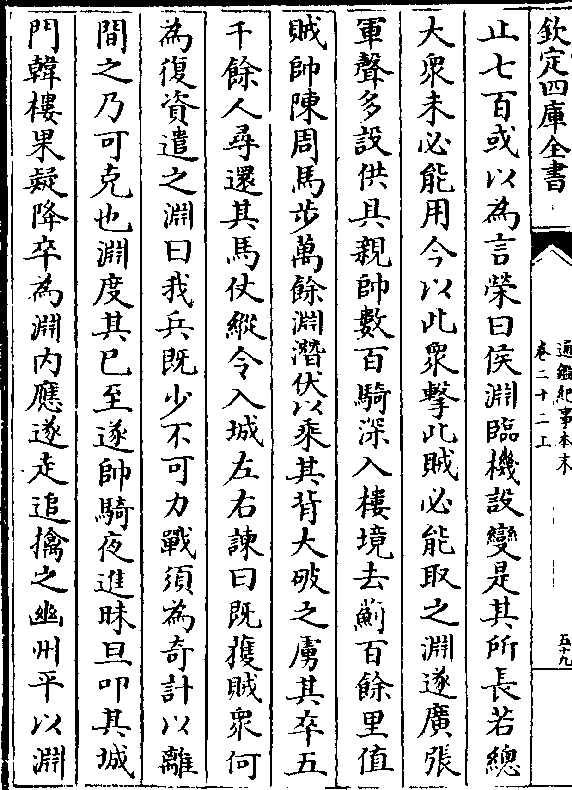 欽定四庫全書
通鑑紀事本末
卷二十二上
五十九
止七百或以為言榮曰侯淵臨機設變是其所長若總
大衆未必能用今以此衆擊此賊必能取之淵遂廣張
軍聲多設供具親帥數百騎深入樓境去薊百餘里值
賊帥陳周馬步萬餘淵潛伏以乘其背大破之虜其卒五
千餘人尋還其馬仗縱令入城左右諫曰既獲賊衆何
為復資遣之淵曰我兵既少不可力戰須為奇計以離
間之乃可克也淵度其已至遂帥騎夜進昧旦叩其城
門韓樓果疑降卒為淵内應遂走追擒之幽州平以淵